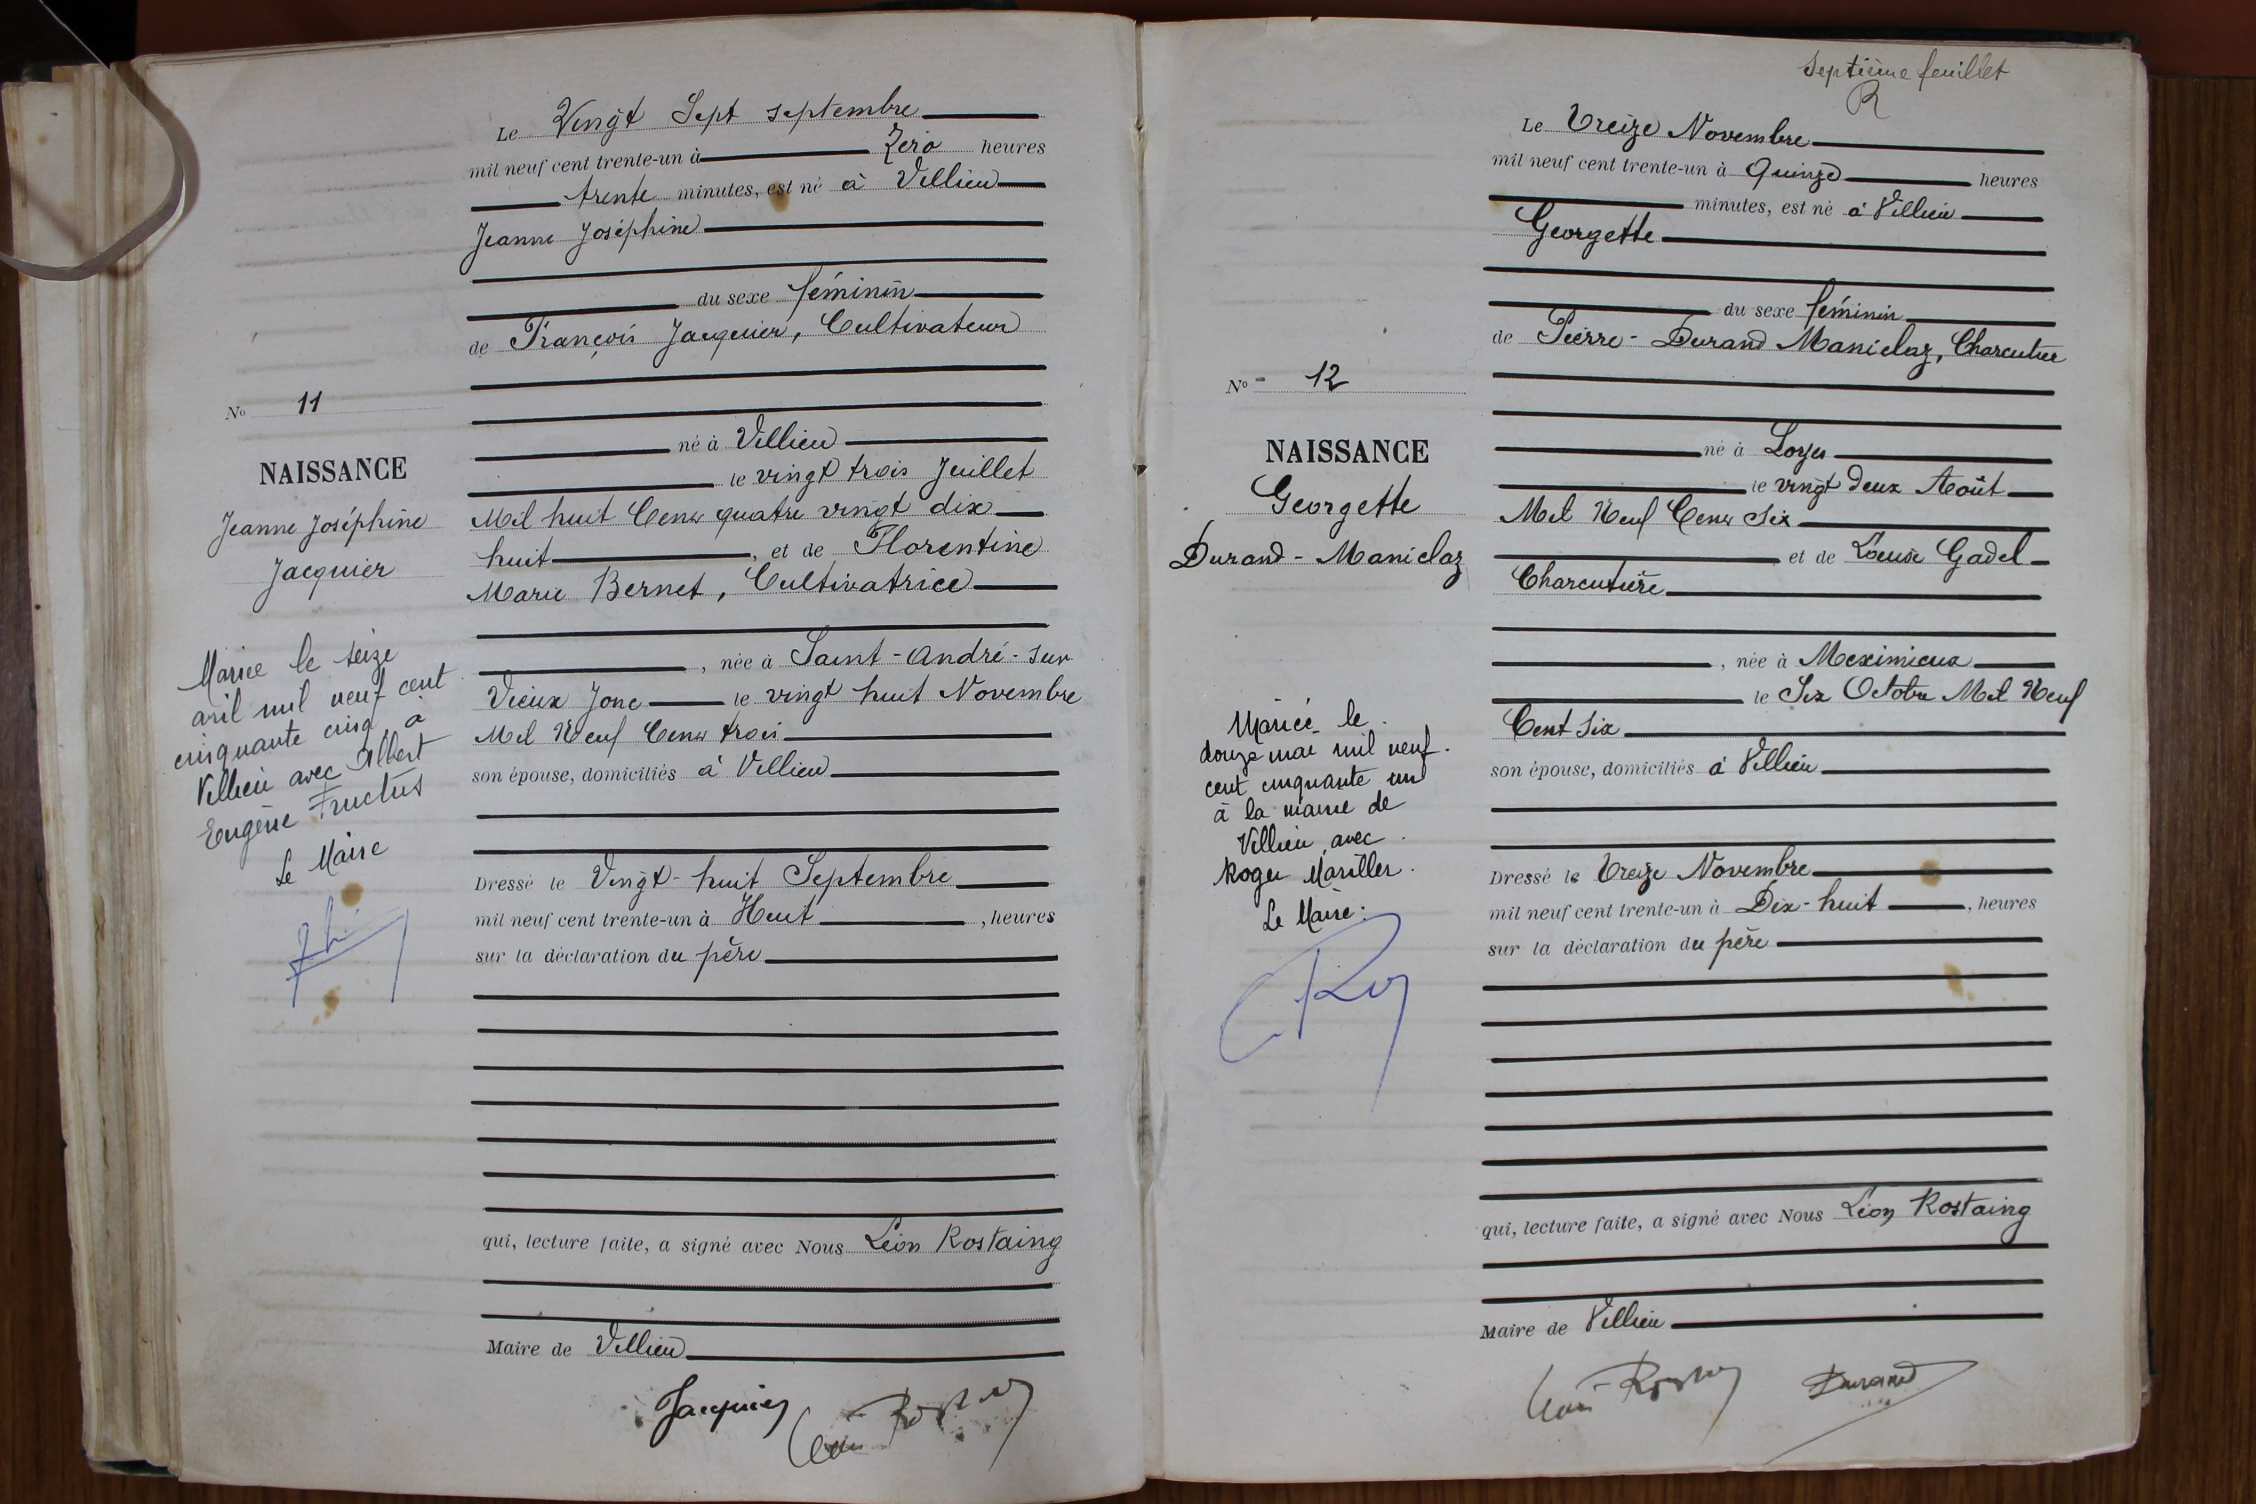 Le Vingt Sept septembre
mil neuf cent trente-un à Zéro heures
trente minutes, est né à Villieu
Jeanne Joséphine
du sexe féminin
de François Jacquier, Cultivateur
né à Villieu
le vingt trois Juillet
Mil huit Cent quatre vingt dix
huit, et de Florentine
Marie Bernet, Cultivatrice
, née à Saint-André-sur
Vieux Jonc le vingt huit Novembre
Mil Neuf Cent trois
son épouse, domiciliés à Villieu
Dressé le Vingt-huit Septembre
mil neuf cent trente-un à Huit, heures
sur la déclaration du père
qui, lecture faite, a signé avec Nous Léon Rostaing
Maire de Villieu
Jacquier
No 11
NAISSANCE
Jeanne Joséphine
Jacquier
Mariée le seize
avril mil neuf cent
cinquante cinq à
Villieu avec Albert
Eugène Fructus
Le Maire
Septième feuillet
R
Le Treize Novembre
mil neuf cent trente-un à Quinze heures
minutes, est né à Villieu
Georgette
du sexe féminin
de Pierre-Durand Maniclaz, Charcutier
né à Loyes
le vingt deux Août
Mil Neuf Cent Six
et de Louise Gadel
Charcutière
, née à Meximieux
le Six Octobre Mil Neuf
Cent Six
son épouse, domiciliés à Villieu
Dressé le Treize Novembre
mil neuf cent trente-un à Dix-huit, heures
sur la déclaration du père
qui, lecture faite, a signé avec Nous Léon Rostaing
Maire de Villieu
Durand
No 12
NAISSANCE
Georgette
Durand-Maniclaz
Mariée le
douze mai mil neuf
cent cinquante un
à la mairie de
Villieu avec
Roger Mariller
Le Maire: